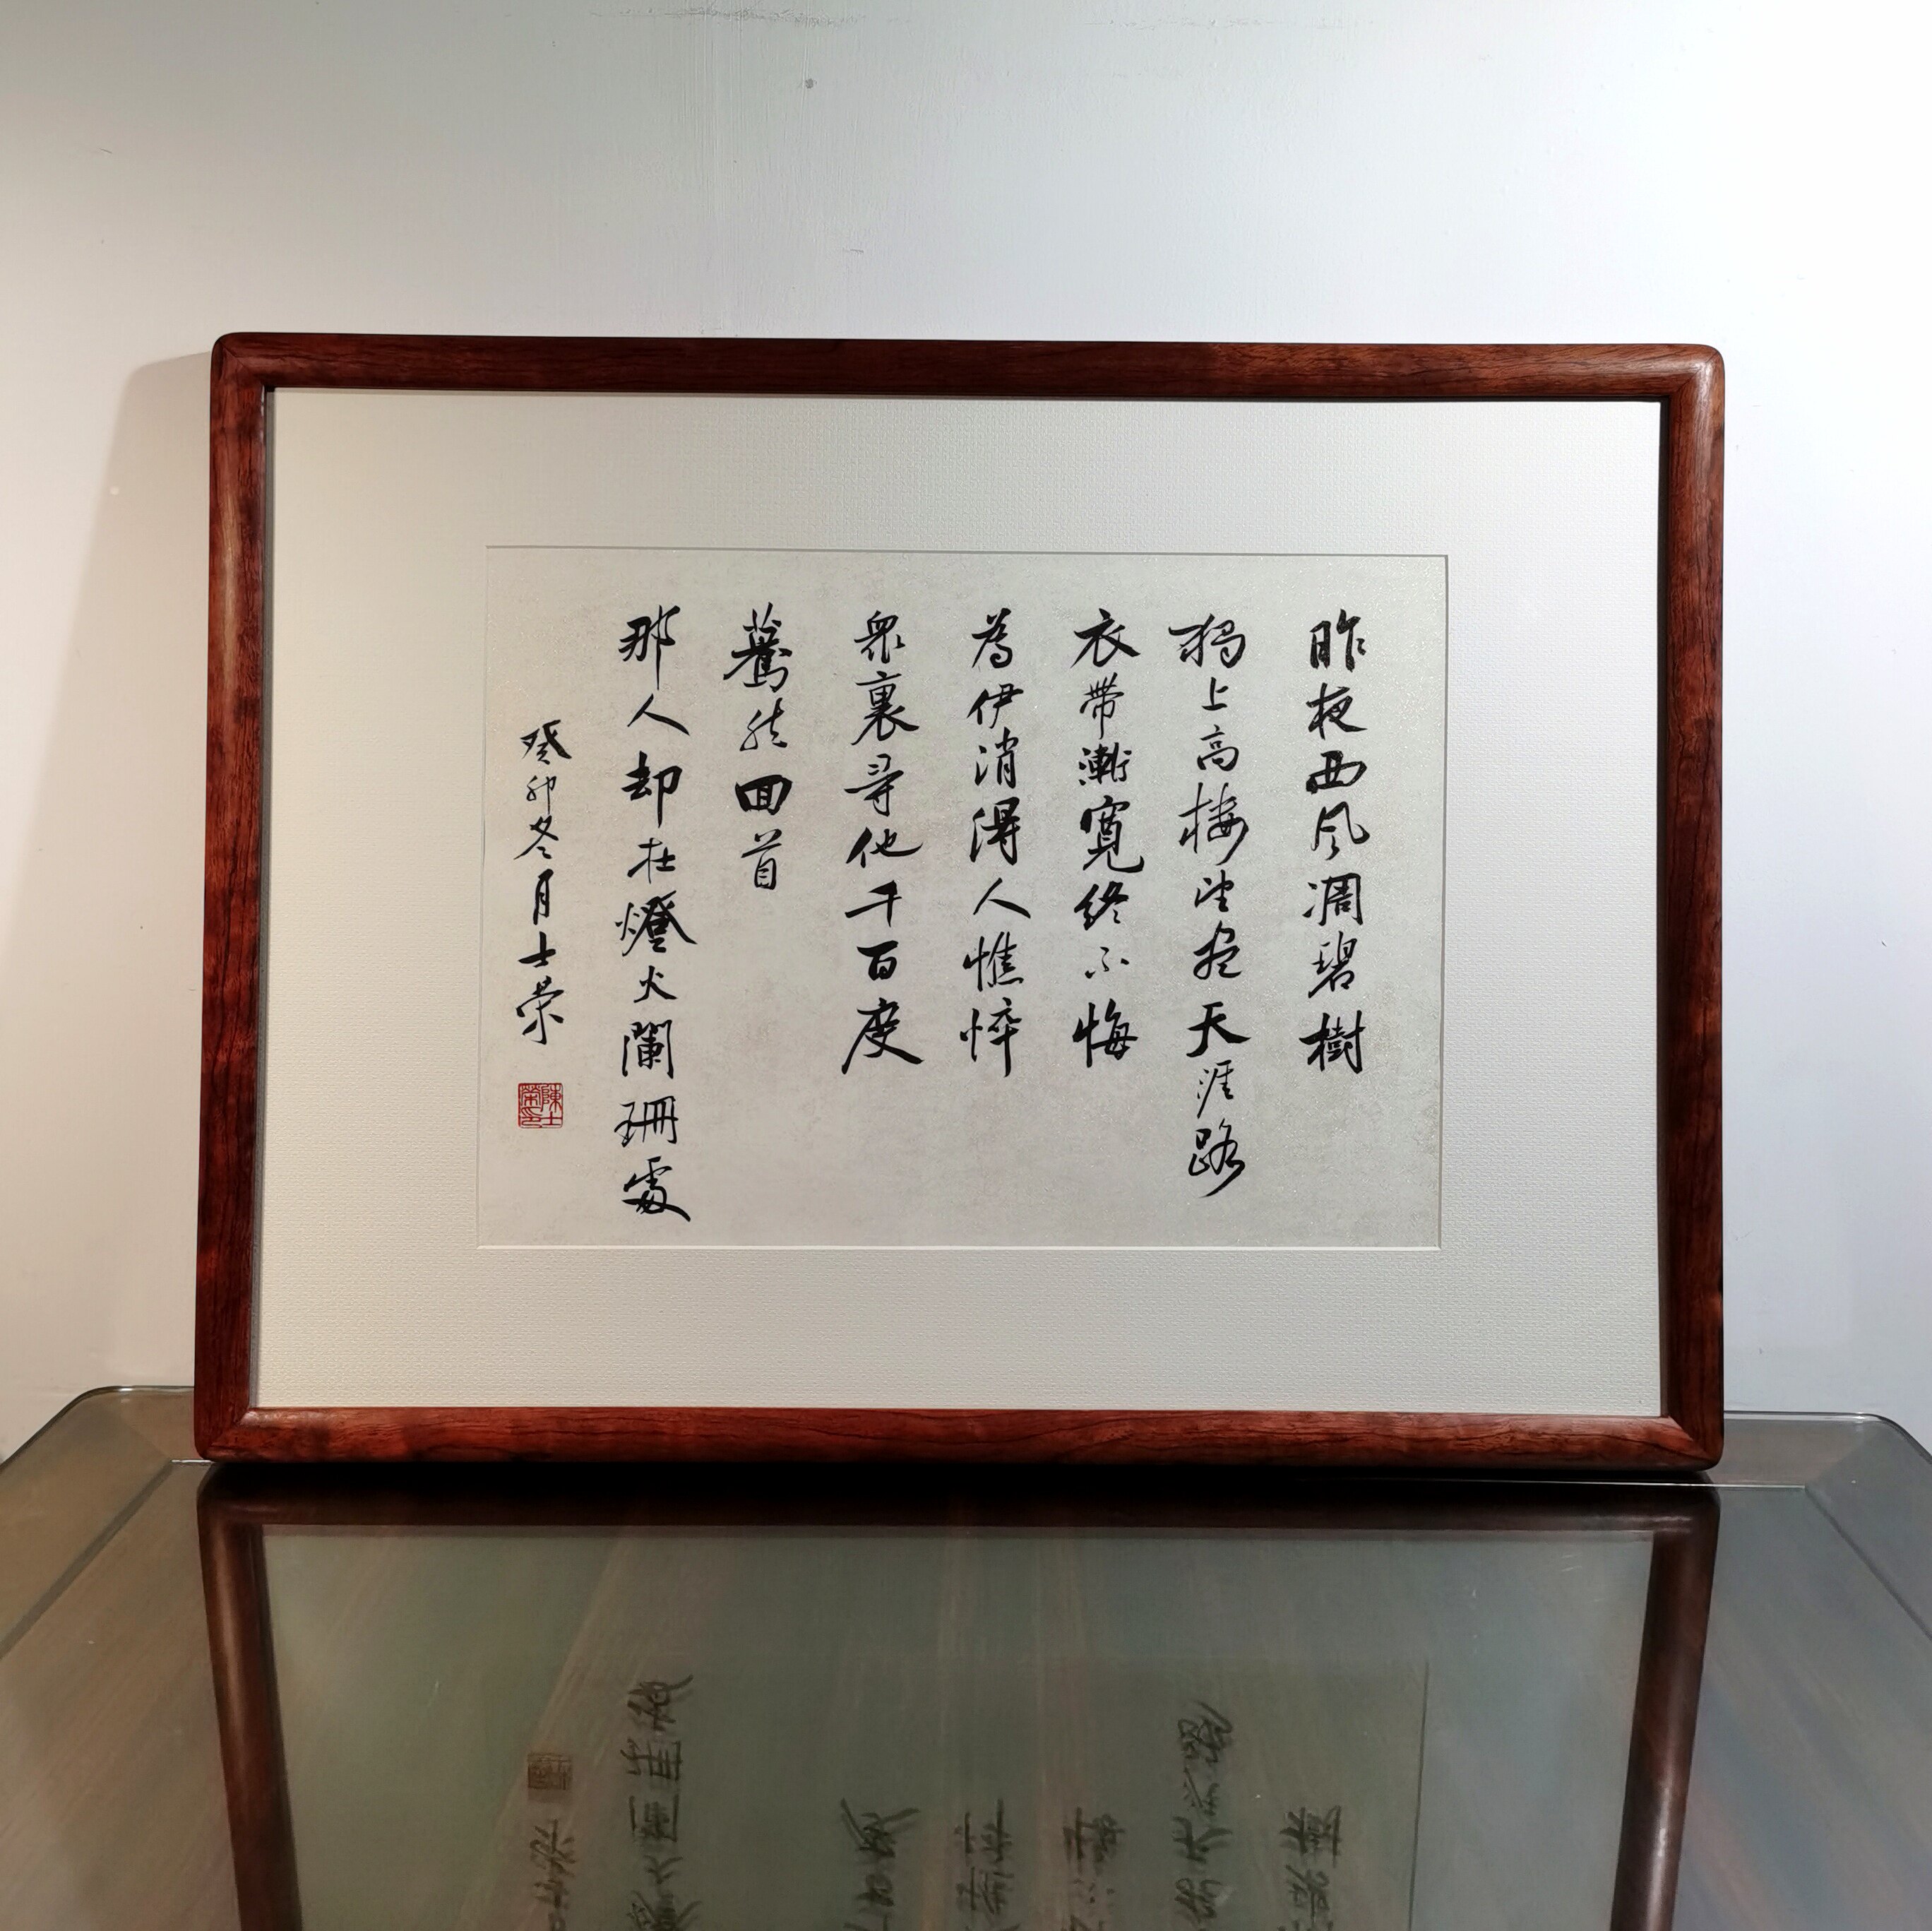 昨夜西風凋碧樹
獨上高樓望盡天涯路
衣帶漸寬終不悔
為伊消得人憔悴
衆裏尋他千百度
驀然回首
那人却在燈火闌珊處
癸卯冬月士榮
陳士榮印